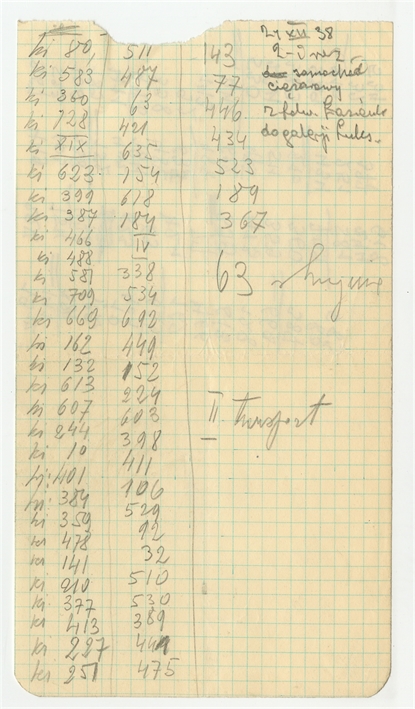 21 XII 38
2-i raz
samochód
ciężarowy
z
do galerji
ki 80, 511 143
ki 583 487 77
ki 360 63 446
ki 728 421 434
ki XIX 635 523
ki 623 154 189
ki 399 618 367
ki 387 184
ki 466 IV
ki 488
ki 581 338 63
ki 709 534
ki 669 692
ki 162 449
ki 132 152
ki 613 224
ki 607 603 II transport
ki 244 398
ki 10 411
ki 401 106
ki 384 529
ki 359 92
ki 478 32
ki 141 510
ki 210 530
ki 377 389
ki 413 449
ki 227 475
ki 251